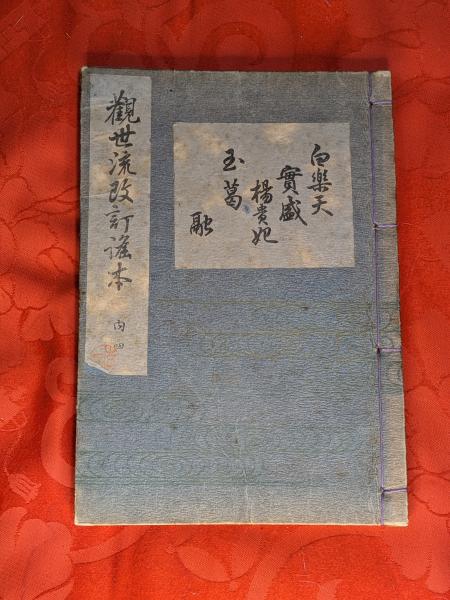 觀世流改訂謠本
内四
白樂天
實盛
楊貴妃
玉葛
融